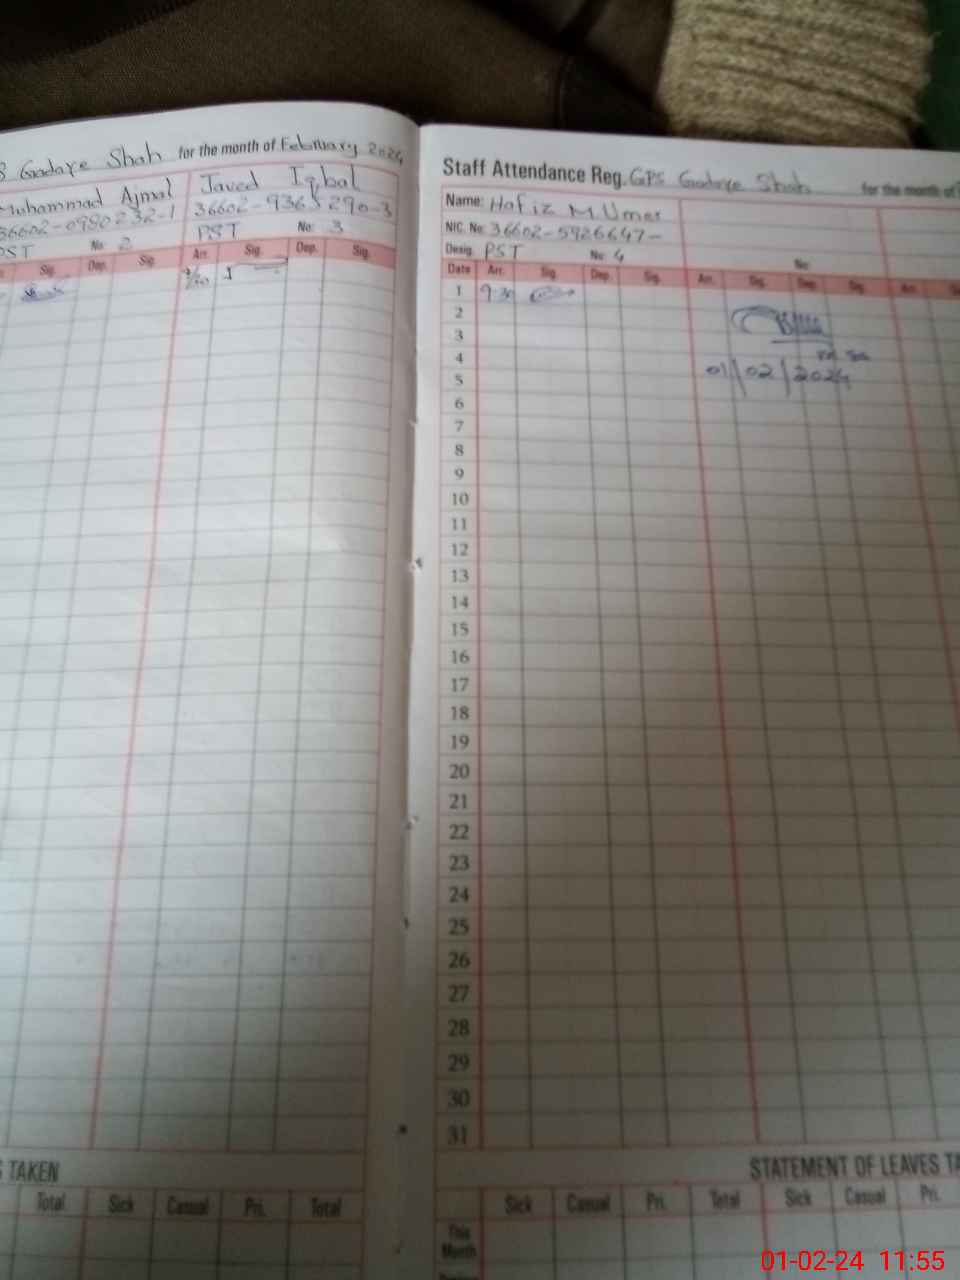 Gadaye Shah for the month of February 2024
Muhammad Ajmal
36602-0980232-1
PST No: 2
Sig. Dep. Sig.
Javed Iqbal
36602-9365290-3
PST No: 3
Arr. Sig. Dep. Sig.
TAKEN
Total Sick Casual Pri. Total
Staff Attendance Reg. GPS Gadaye Shah for the month of
Name: Hafiz M Umer
NIC. No: 36602-5926647-
Desig. PST No: 4 No:
Date Arr. Sig. Dep. Sig. Arr. Sig. Dep. Sig. Arr.
1 9:30
2
3
4
01/02/2024
5
6
7
8
9
10
11
12
13
14
15
16
17
18
19
20
21
22
23
24
25
26
27
28
29
30
31
STATEMENT OF LEAVES TA
Sick Casual Pri. Total Sick Casual Pri.
This
Month
01-02-24 11:55